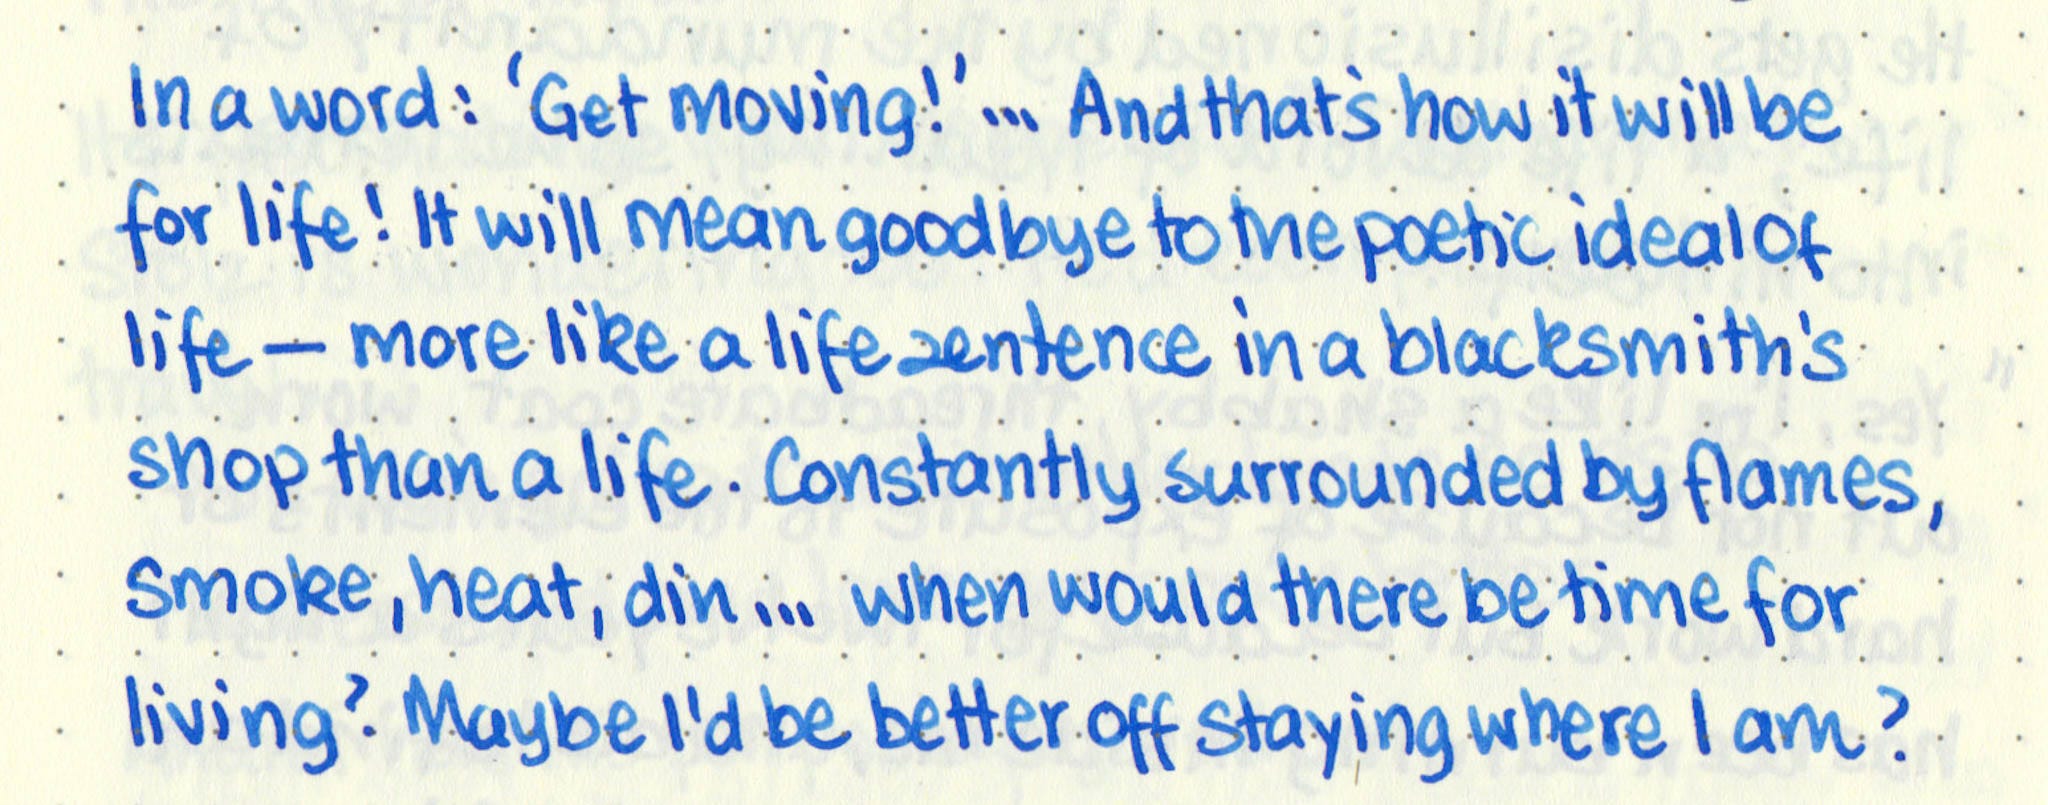 In a word: 'Get moving!'... And that's how it will be
for life! It will mean goodbye to the poetic ideal of
life — more like a life sentence in a blacksmith's
shop than a life. Constantly surrounded by flames,
smoke, heat, din... when would there be time for
living? Maybe I'd be better off staying where I am?